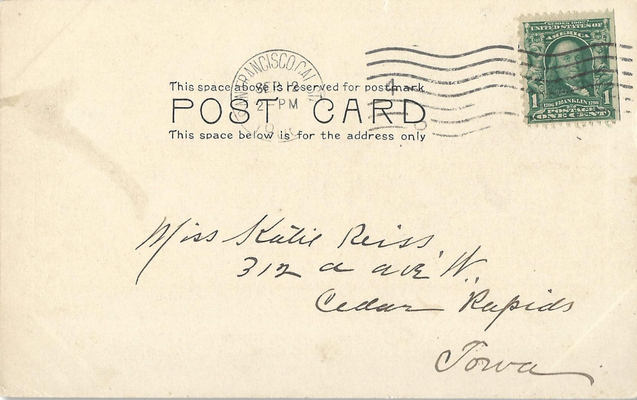 SAN FRANCISCO, CAL.
SEP 12
2 PM
4
SERIES 1902
UNITED STATES OF
AMERICA
1 1706 FRANKLIN 1790 1
POSTAGE
ONE CENT
This space above is reserved for postmark
POST CARD
This space below is for the address only
Miss Katie Reiss
312 a ave W.
Cedar Rapids
Iowa